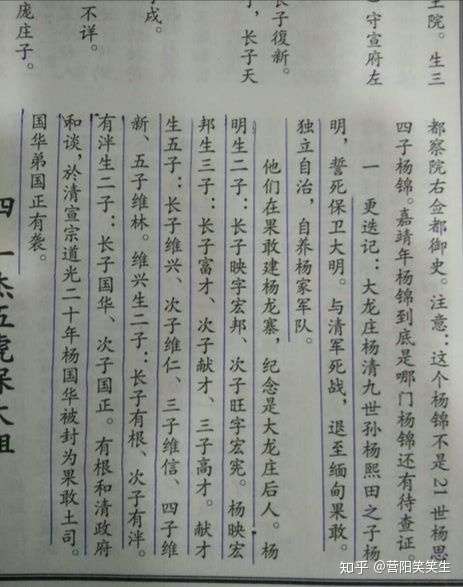 王院。生三
守宣府左
长子復新。
，长子天
戌。
不详。
庞庄子。
都察院右佥都御史。注意：这个杨锦不是21世杨思
四子杨锦。嘉靖年杨锦到底是哪门杨锦还有待查证。
一 更迭记：大龙庄杨清九世孙杨熙田之子杨
明，誓死保卫大明。与清军死战，退至缅甸果敢。
独立自治，自养杨家军队。
他们在果敢建杨龙寨，纪念是大龙庄后人。杨
明生二子：长子映字宏邦、次子旺字宏宪。杨映宏
邦生三子：长子富才、次子献才、三子高才。献才
生五子：长子维兴、次子维仁、三子维信、四子维
新、五子维林。维兴生二子：长子有根、次子有泮。
有泮生二子：长子国华、次子国正。有根和清政府
和谈，於清宣宗道光二十年杨国华被封为果敢土司。
国华弟国正有袭。
四 一杰五虎保大祖
知乎 @营阳笑笑生